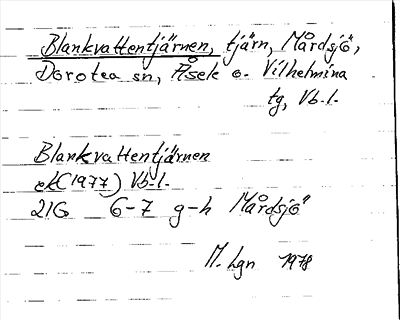 Blankvattentjärnen, tjärn, Mårdsjö,
Dorotea sn, Åsele o. Vilhelmina
tg, Vb-l.
Blankvattentjärnen
ek(1977) Vb-l.
21G 6-7 g-h Mårdsjö
M. Lgn 1978